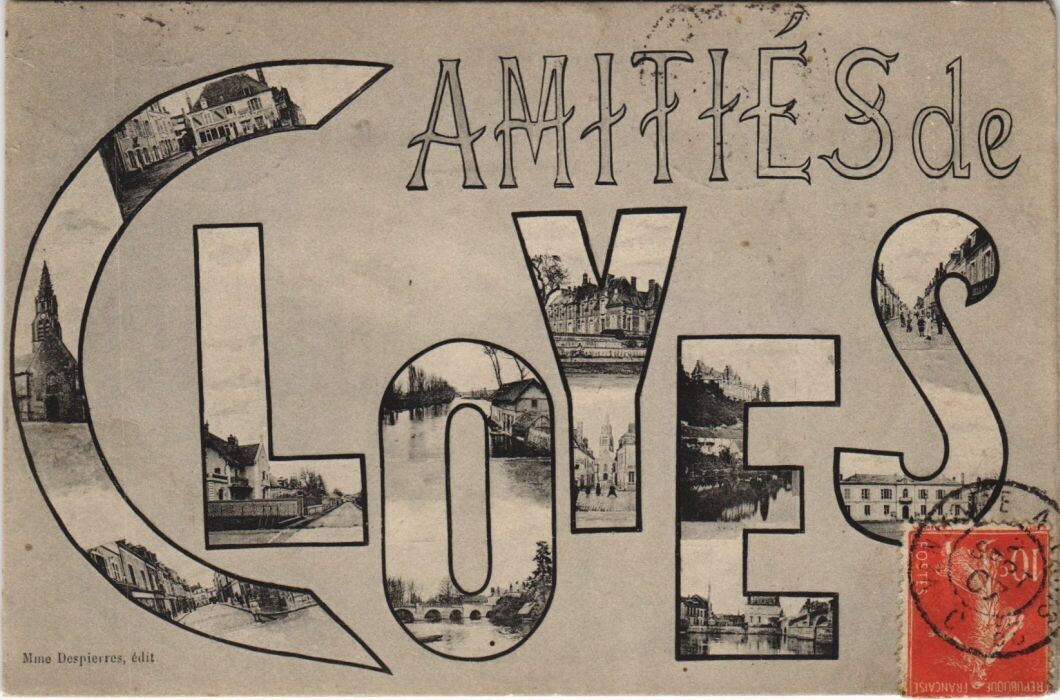 AMITIÉS de
CLOYES
Mme Despierres, édit
10c
POSTES
RÉPUBLIQUE FRANÇAISE